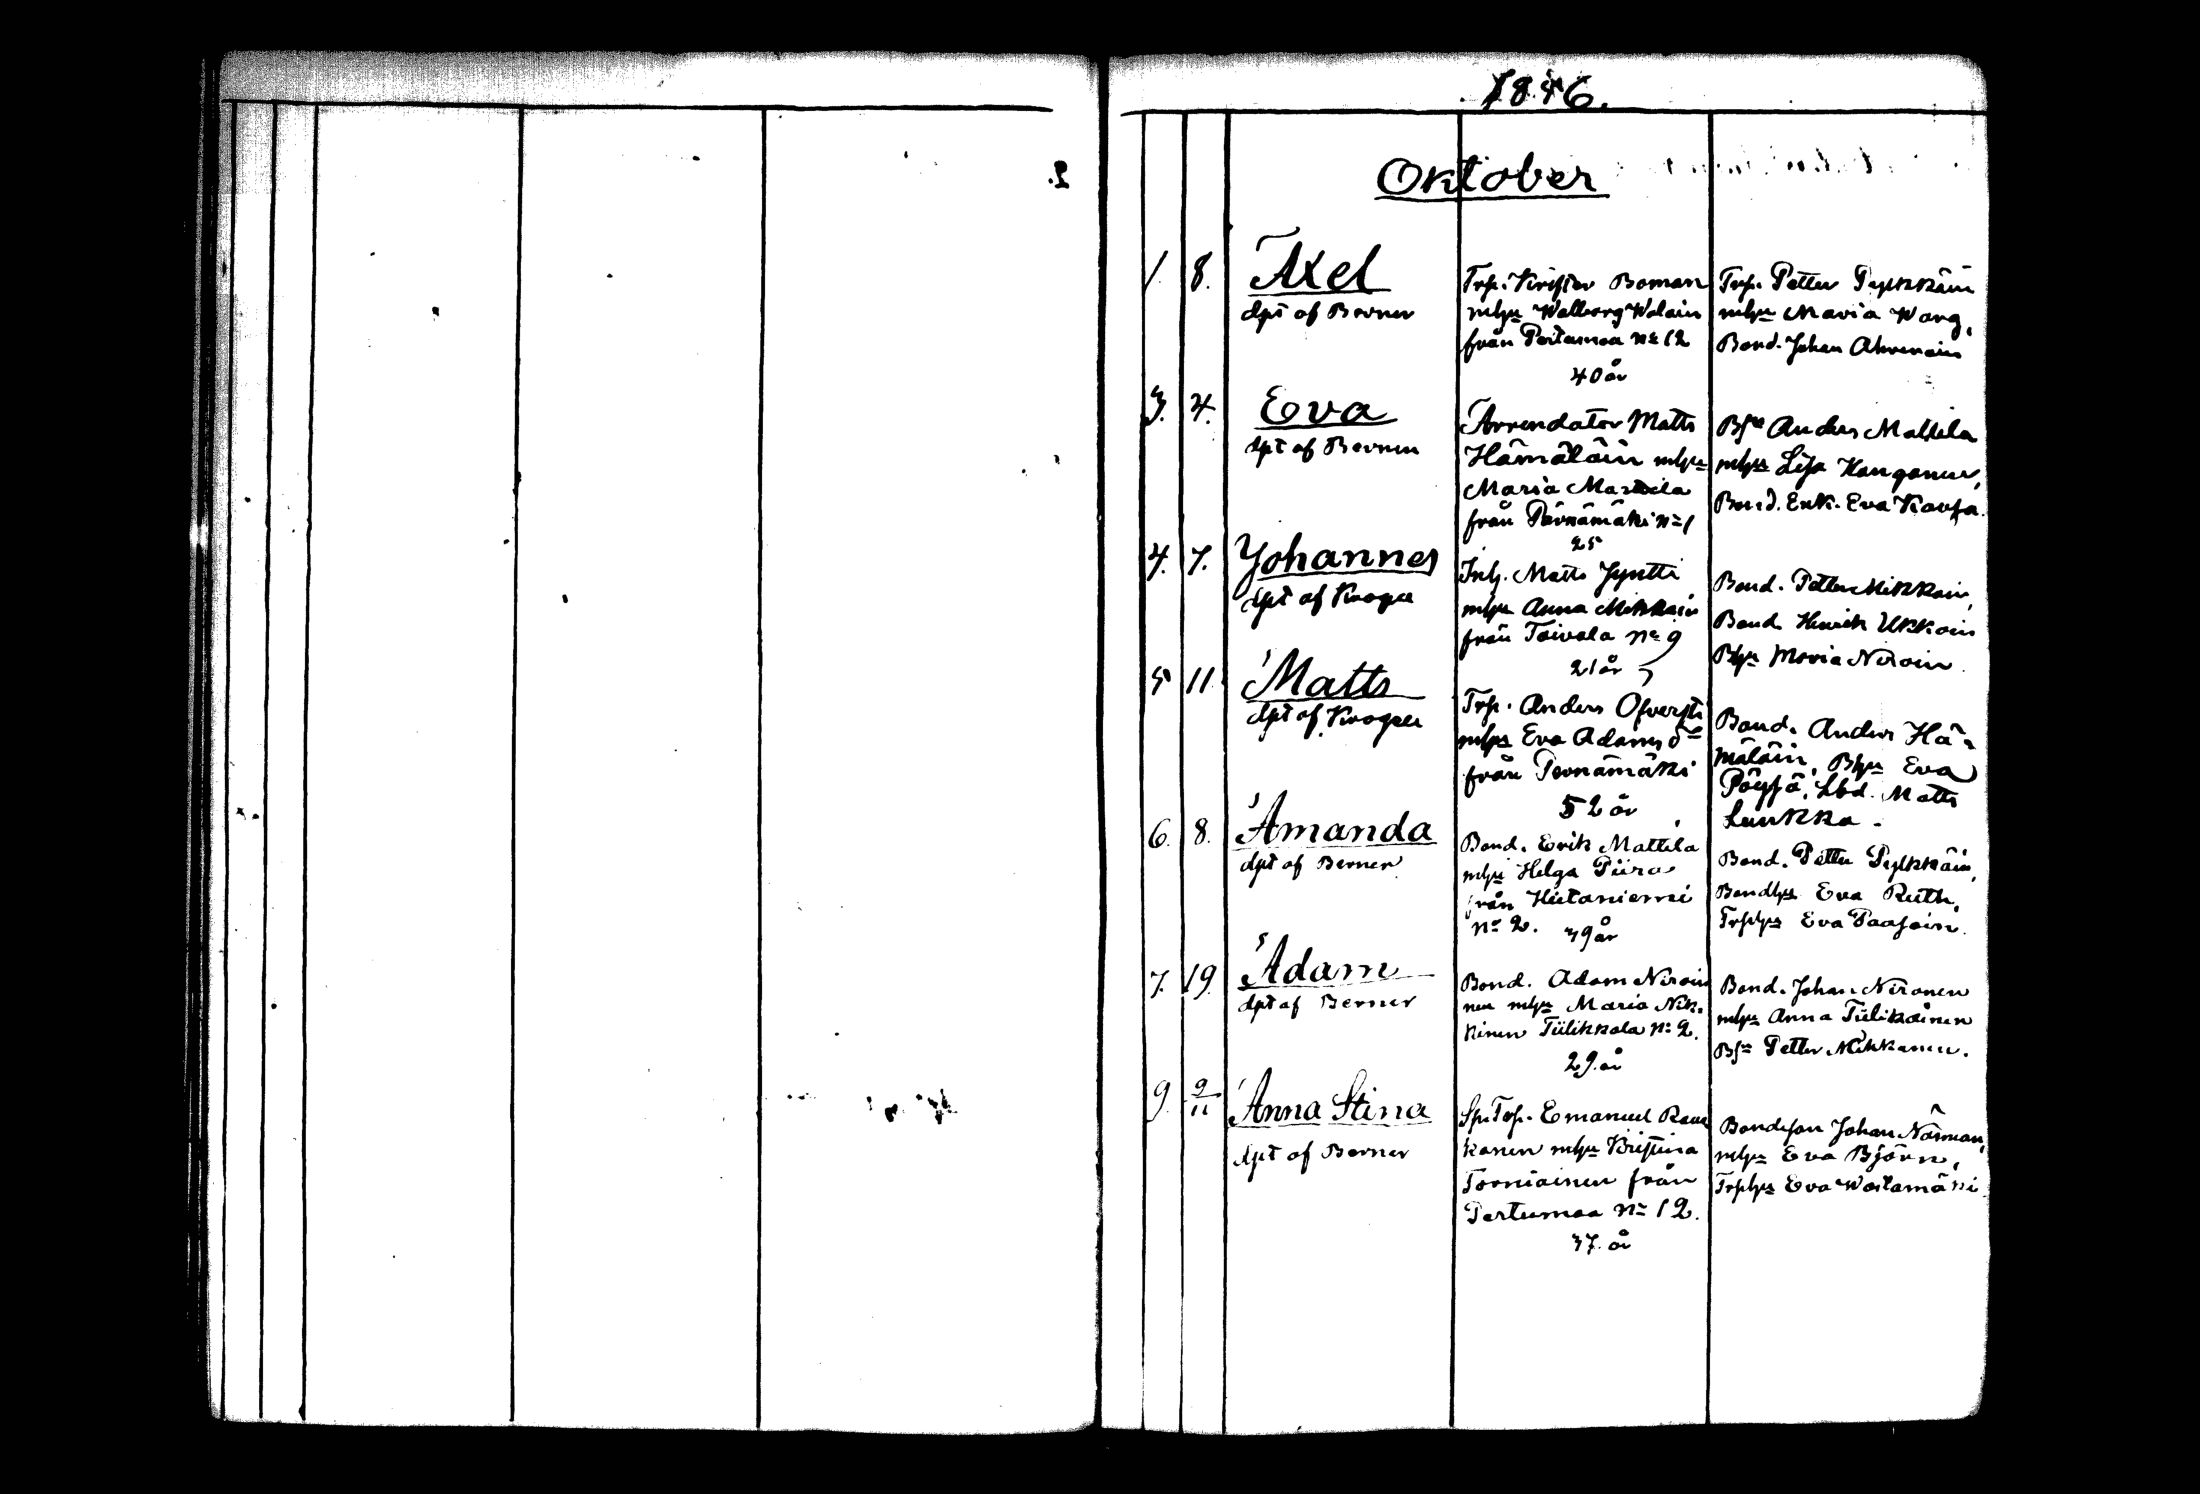 2.
1846.
Oktober
1. 8. Axel
dpt af Berner
Trp. Krister Boman
mhu Walborg Wolain
från Pertumaa No 12
40 år
Trp. Petter Pylkkäin
mhu Maria Warg,
Bond. Johan Ahvenain
3. 4. Eva
dpt af Berner
Arrendator Matts
Hämäläin mhu
Maria Mattila
från Pärnämäki No 1
25
Bsn Anders Mattila
mhu Lisa Kanganen,
Bond. Enk. Eva
4. 7. Johannes
dpt af Kroger
Inh. Matts Jyntti
mhu Anna Mikkain
från Toivola No 9
21 år
Bond. Petter Mikkain,
Bond. Henrik Ukkoin
Bhu Maria Niroin
5 11 Matts
dpt af Kroger
Trp. Anders Öfversti
mhu Eva Adamsdr
från Pernämäki
52 år
Bond. Anders Hä-
mäläin, Bhu Eva
Pöysä, Lbd. Matts
Luukka.
6. 8. Amanda
dpt af Berner
Bond. Erik Mattila
mhu Helga Piira
från Hietaniemi
No 2. 39 år
Bond. Petter Pylkkäin,
Bondhu Eva Ruth,
Trphu Eva Paasoin.
7. 19. Adam
dpt af Berner
Bond. Adam Niroi
nen mhu Maria Nik-
kinen Tiilikkala No 2.
29. år
Bond. Johan Nironen
mhu Anna Tiilikainen
Bsn Petter Nikkanen.
9. 9/11 Anna Stina
dpt af Berner
Sp. Trp. Emanuel
kanen mhu Kristina
Torniainen från
Pertumaa No 12.
37. år
Bondeson Johan Närman,
mhu Eva Björn,
Trphu Eva